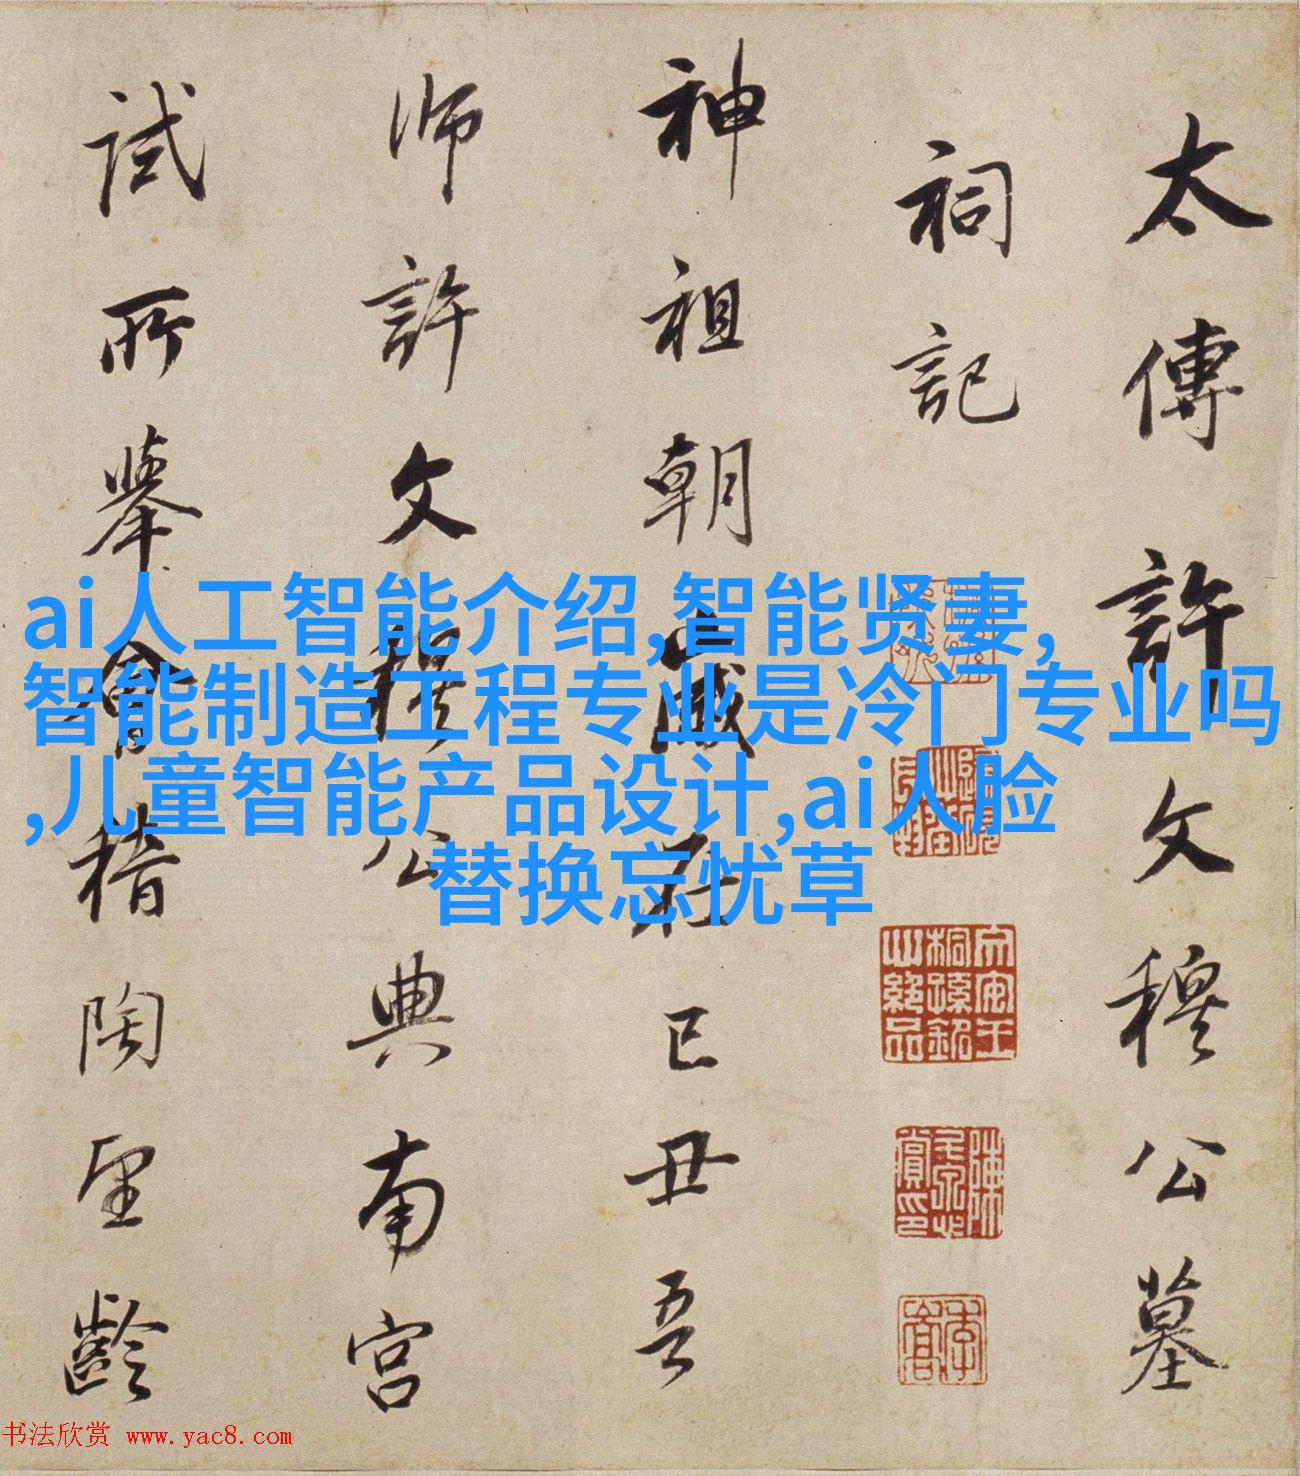 太傳許文穆公墓
祠記
神祖朝歲在己丑吾
師許文穆公典南宮
試所舉會稽陶望齡
ai人工智能介绍,智能贤妻,
智能制造工程专业是冷门专业吗
,儿童智能产品设计,ai人脸
替换忘忧草
书法欣赏 www.yac8.com